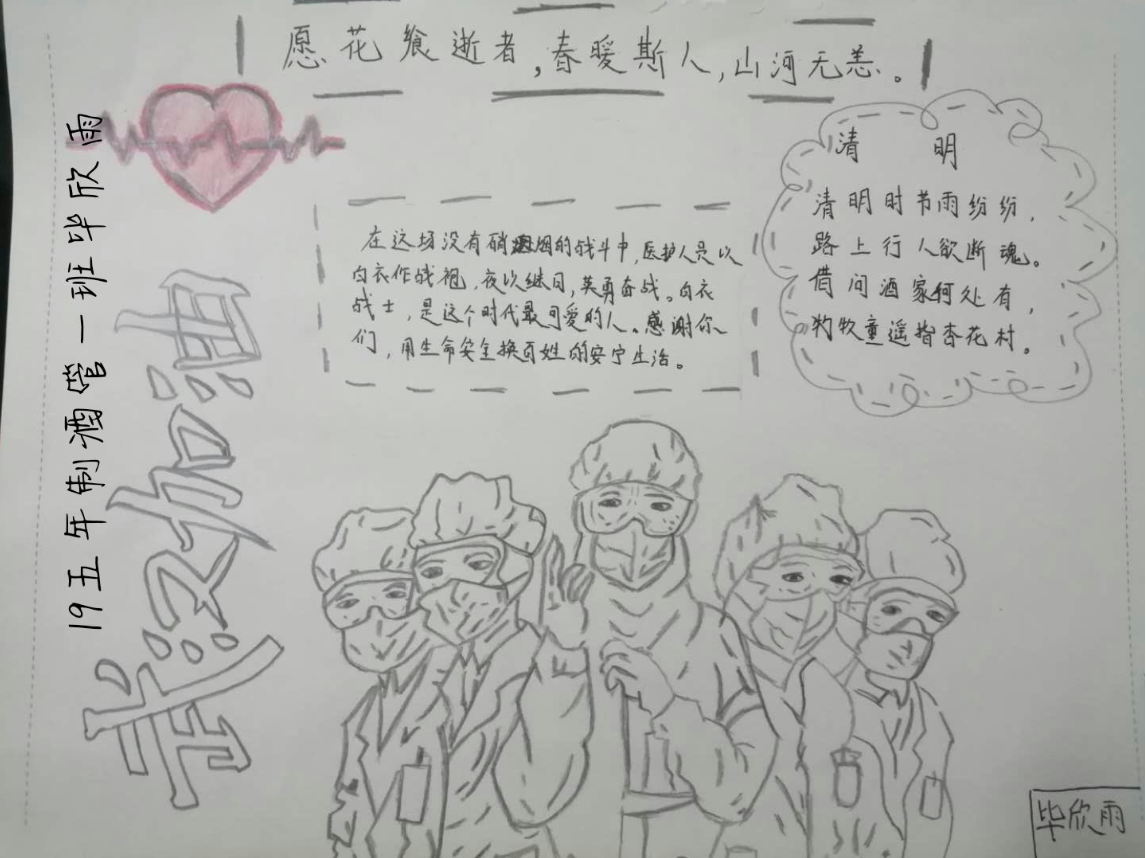 愿花飨逝者,春暖斯人,山河无恙。
19五年制酒管一班毕欣雨
武汉加油
在这场没有硝烟的战斗中,医护人员以
白衣作战袍,夜以继日,英勇奋战。白衣
战士,是这个时代最可爱的人。感谢你
们,用生命安全换百姓的安宁生活。
清 明
清明时节雨纷纷,
路上行人欲断魂。
借问酒家何处有,
牧童遥指杏花村。
毕欣雨